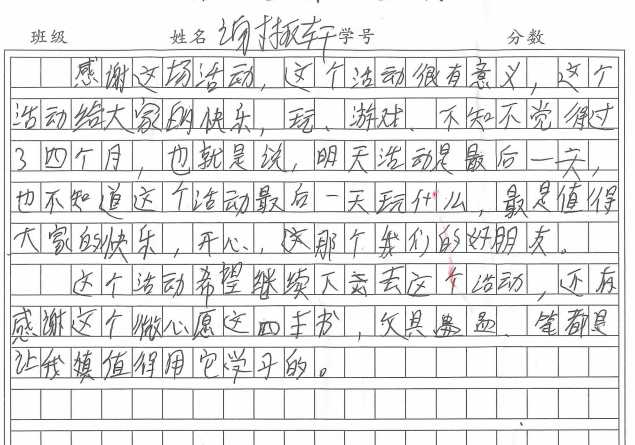 班级 姓名 学号 分数
感谢这场活动,这个活动很有意义,这个
活动给大家的快乐,玩、游戏、不知不觉得过
了四个月,也就是说,明天活动是最后一天,
也不知道这个活动最后一天玩什么,最是值得
大家的快乐,开心,这那个我们的好朋友。
这个活动希望继续下去去这个活动,还有
感谢这个做心愿这四本书,文具 、笔都是
让我 值得用它学习的。